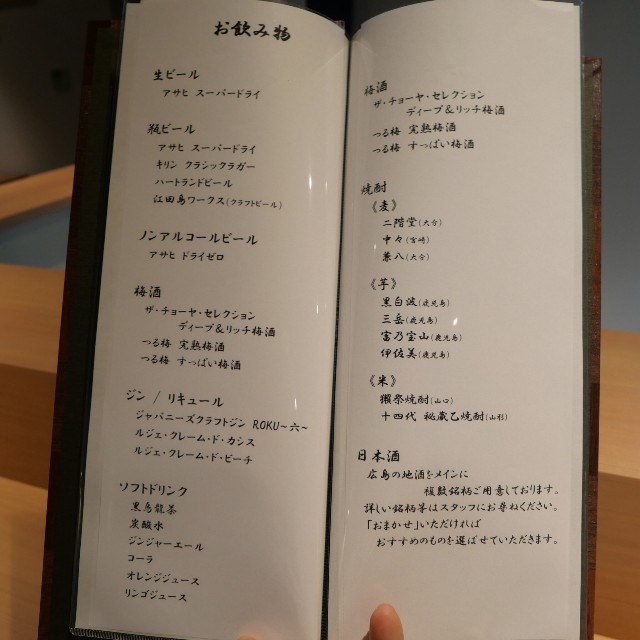 お飲み物
生ビール
アサヒ スーパードライ
瓶ビール
アサヒ スーパードライ
キリン クラシックラガー
ハートランドビール
江田島ワークス(クラフトビール)
ノンアルコールビール
アサヒ ドライゼロ
梅酒
ザ・チョーヤ・セレクション
ディープ&リッチ梅酒
つる梅 完熟梅酒
つる梅 すっぱい梅酒
ジン / リキュール
ジャパニーズクラフトジン ROKU～六～
ルジェ・クレーム・ド・カシス
ルジェ・クレーム・ド・ピーチ
ソフトドリンク
黒烏龍茶
炭酸水
ジンジャーエール
コーラ
オレンジジュース
リンゴジュース
梅酒
ザ・チョーヤ・セレクション
ディープ&リッチ梅酒
つる梅 完熟梅酒
つる梅 すっぱい梅酒
焼酎
《麦》
二階堂(大分)
中々(宮崎)
兼八(大分)
《芋》
黒白波(鹿児島)
三岳(鹿児島)
富乃宝山(鹿児島)
伊佐美(鹿児島)
《米》
獺祭焼酎(山口)
十四代 秘蔵乙焼酎(山形)
日本酒
広島の地酒をメインに
複数銘柄ご用意しております。
詳しい銘柄等はスタッフにお尋ねください。
「おまかせ」いただければ
おすすめのものを選ばせていただきます。